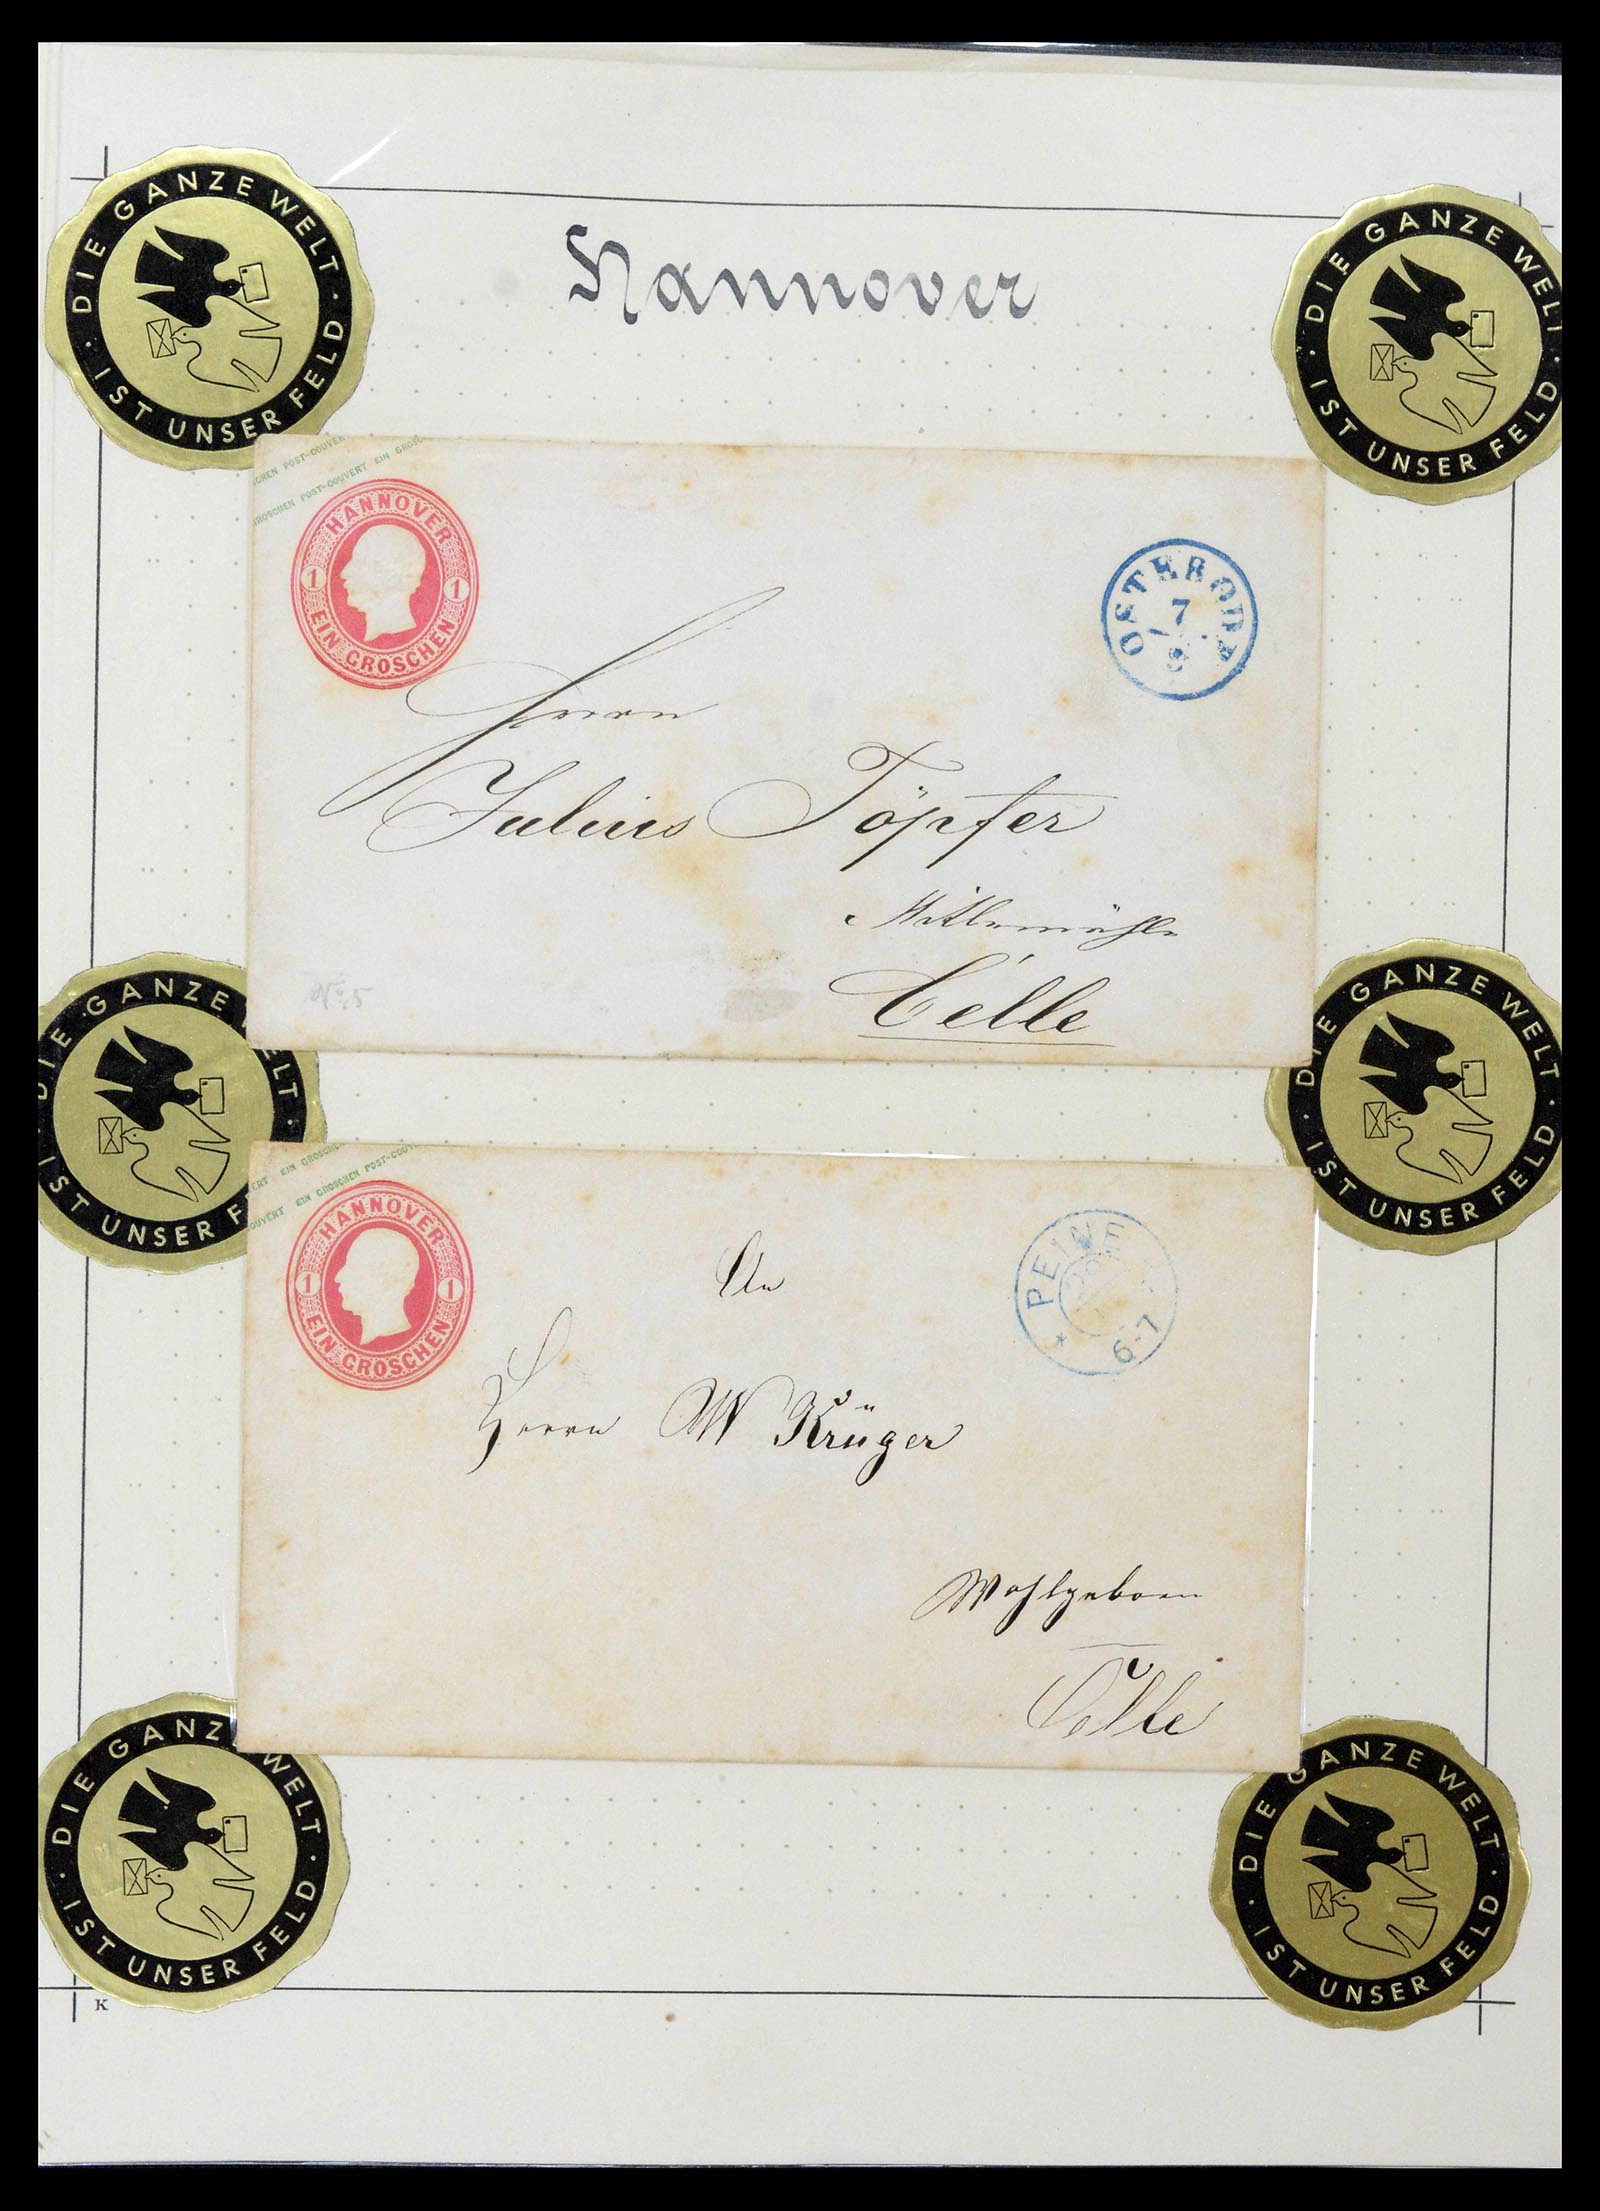 DIE GANZE WELT · IST UNSER FELD ·
DIE GANZE WELT · IST UNSER FELD ·
Hannover
SCHEN POST-COUVER
GROSCHEN POST-COUVERT EIN GROSC
HANNOVER
1 1
EIN GROSCHEN
OSTERODE
7
8
Herrn
Julius Töpfer
Celle
No. 5
DIE GANZE WELT · IST UNSER FELD ·
DIE GANZE WELT · IST UNSER FELD ·
ERT EIN GROSCHEN
OUVERT EIN GROSCHEN POST-COUV
HANNOVER
1 1
EIN GROSCHEN
PEINE
6-7
An
Herrn W Krüger
Wohlgeboren
Celle
DIE GANZE WELT · IST UNSER FELD ·
DIE GANZE WELT · IST UNSER FELD ·
K